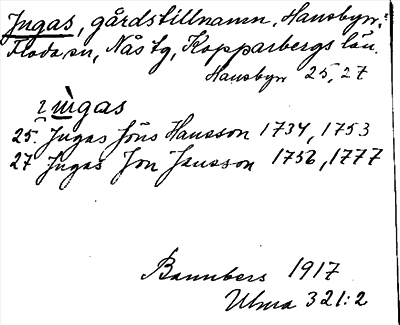 Ingas, gårdstillnamn, Hansbyn,
Floda sn, Nås tg, Kopparbergs län.
Hansbyn 25, 27
ingas
25. Ingas Jöns Hansson 1734, 1753
27 Ingas Jon Jansson 1756, 1777
Bannbers 1917
Ulma 321:2